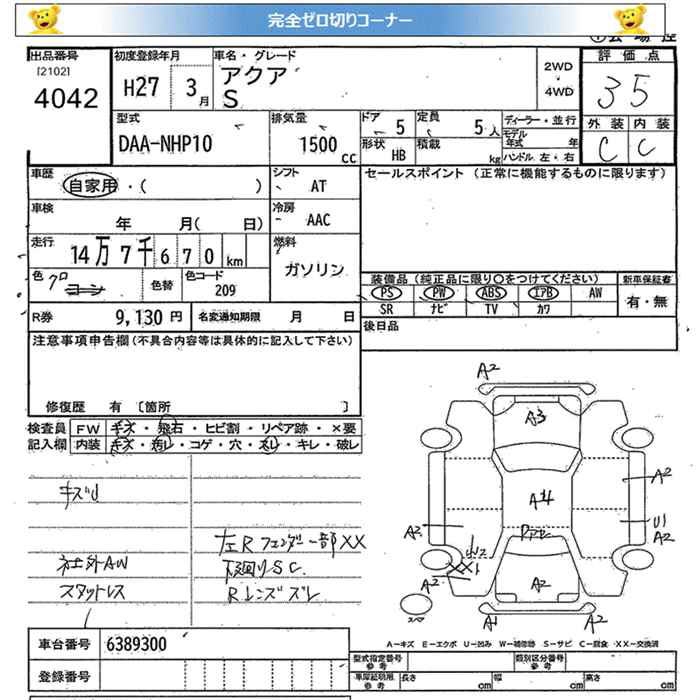 完全ゼロ切りコーナー
出品番号
[2102]
4042
初度登録年月
H27 3月
車名・グレード
アクア
S
2WD
4WD
評価点
35
外装 内装
C C
型式
DAA-NHP10
排気量
1500 CC
ドア 5
定員 5人
形状 HB
積載 kg
ディーラー・並行
モデル年式 年
ハンドル 左・右
車歴 自家用・( )
シフト AT
セールスポイント (正常に機能するものに限ります)
車検 年 月( 日)
冷房 AAC
走行 14万7千670km
燃料
ガソリン
色 クロ
コーン
色替
色コード
209
装備品 (純正品に限り○をつけてください) 新車保証書
PS PW ABS エアB AW 有・無
SR ナビ TV カワ
R券 9,130円 名変通知期限 月 日
後日品
注意事項申告欄 (不具合内容等は具体的に記入して下さい)
修復歴 有 〔箇所 〕
検査員記入欄
FW キズ・飛石・ヒビ割・リペア跡・×要
内装 キズ・汚レ・コゲ・穴・スレ・キレ・破レ
キズU
左Rフェンダー一部XX
社外AW
下廻りSC
スタットレス
Rレンズズレ
A2
A3
A4
A2
A2
U1
A2
A2
A2
A1
A2
スペア
A-キズ E-エクボ U-凹み W-補修跡 S-サビ C-腐食 XX-交換済
車台番号 6389300
登録番号
型式指定番号 参考
類別区分番号 参考
車庫証明用 参考
長さ cm
幅 cm
高さ cm